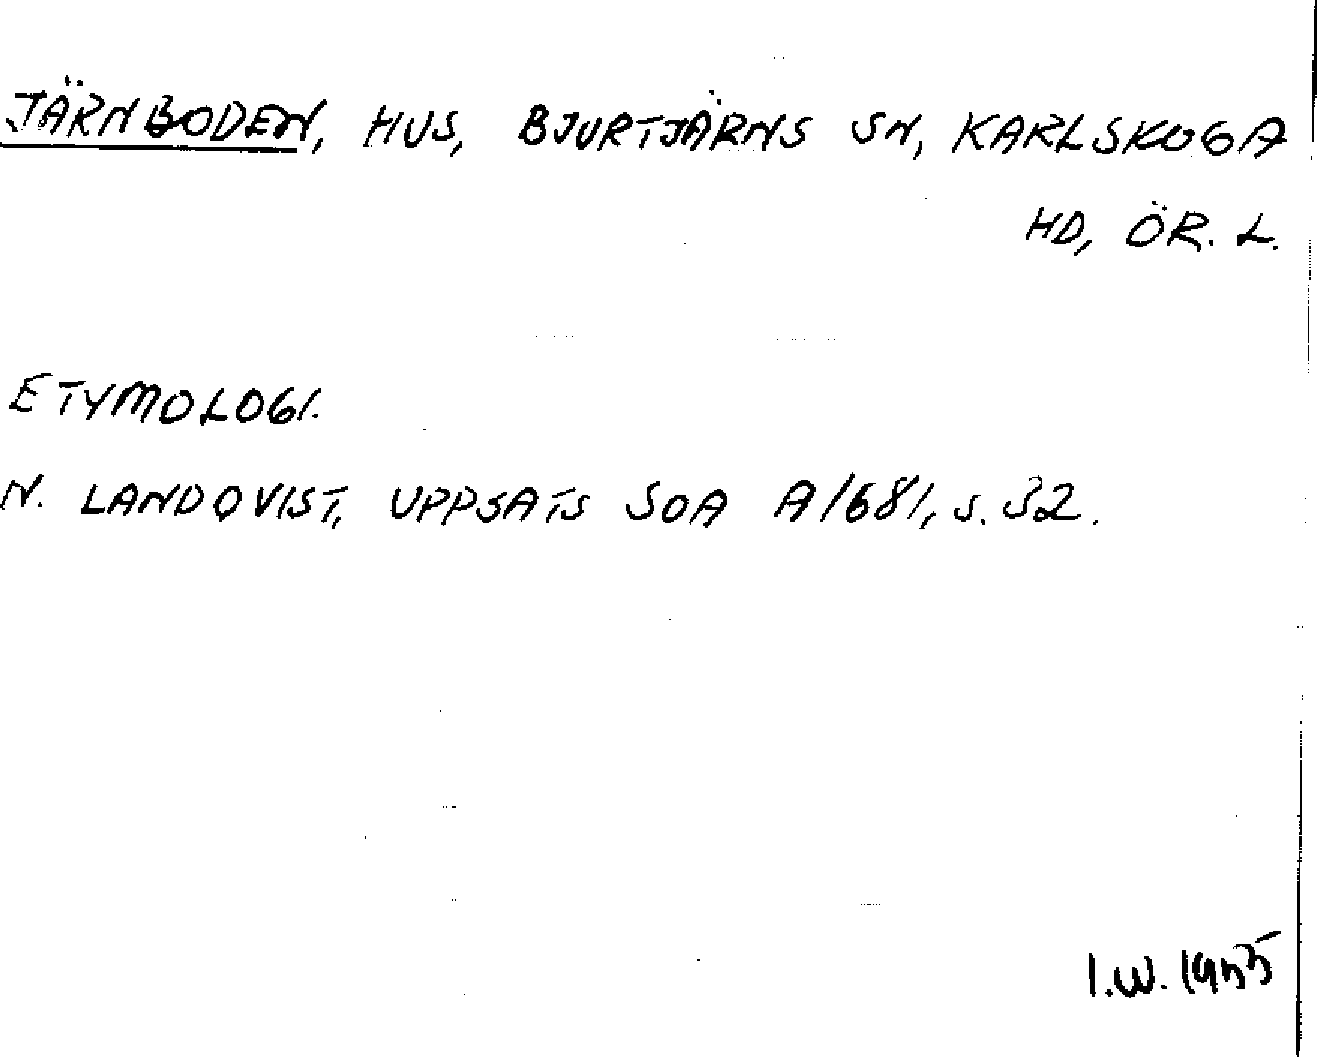 JÄRNBODEN, HUS, BJURTJÄRNS SN, KARLSKOGA
HD, ÖR. L.
ETYMOLOGI.
N. LANDQVIST, UPPSATS SOA A/681, s. 32.
I.W. 1955